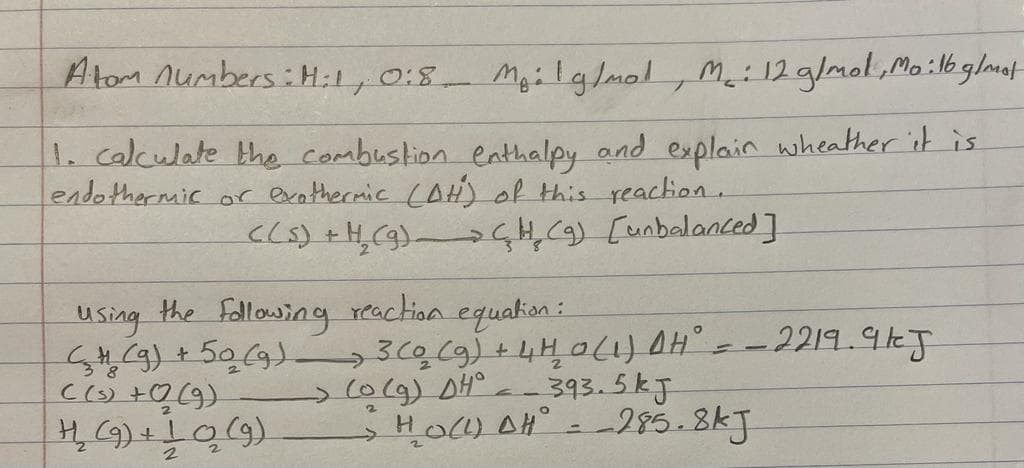 Atom numbers: H:1, O:8 _ M_B: 1g/mol, M_C: 12 g/mol, Mo: 16 g/mol
1. calculate the combustion enthalpy and explain wheather it is
endothermic or exothermic (ΔH°) of this reaction.
C(s) + H₂(g) → C₃H₈(g) [unbalanced]
using the following reaction equation:
C₃H₈(g) + 5O₂(g) → 3CO₂(g) + 4H₂O(l) ΔH° = -2219.9kJ
C(s) + O₂(g) → CO₂(g) ΔH° = -393.5kJ
H₂(g) + 1/2 O₂(g) → H₂O(l) ΔH° = -285.8kJ